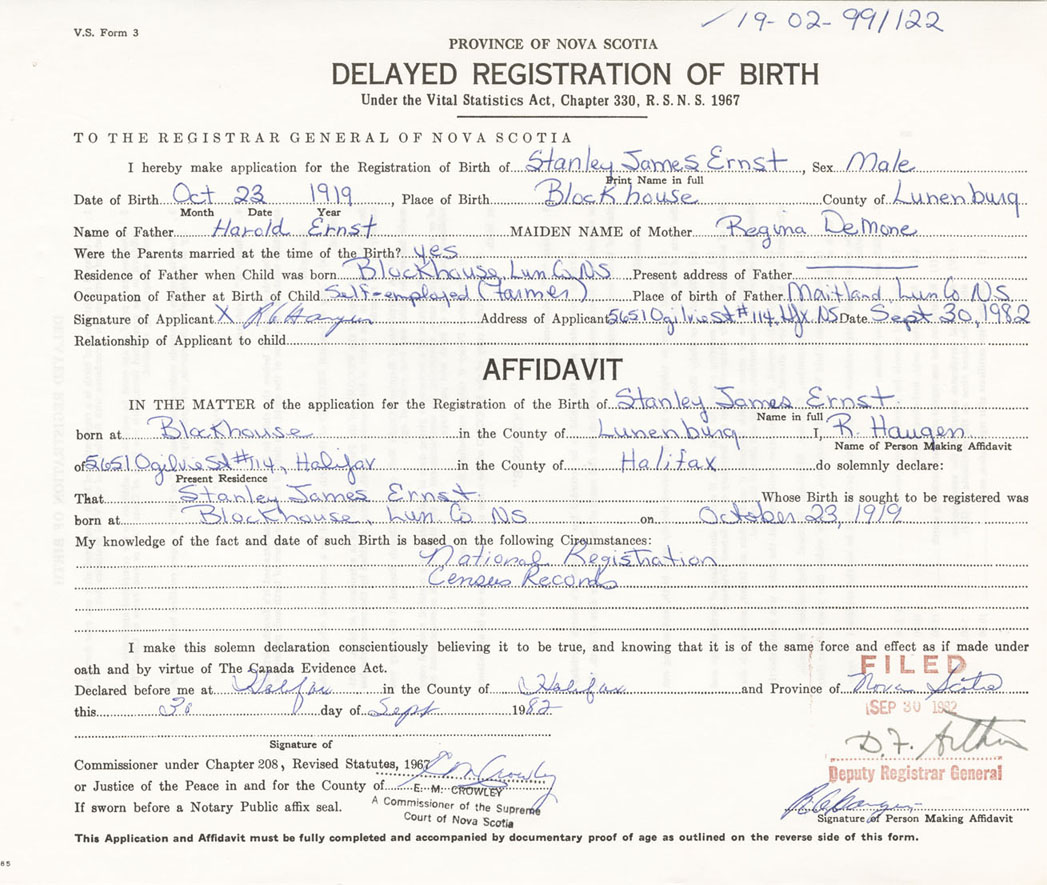 19-02-99/122
V.S. Form 3
PROVINCE OF NOVA SCOTIA
DELAYED REGISTRATION OF BIRTH
Under the Vital Statistics Act, Chapter 330, R. S. N. S. 1967
TO THE REGISTRAR GENERAL OF NOVA SCOTIA
I hereby make application for the Registration of Birth of Stanley James Ernst, Sex Male
Print Name in full
Date of Birth Oct 23 1919, Place of Birth Blockhouse County of Lunenburg
Month Date Year
Name of Father Harold Ernst MAIDEN NAME of Mother Regina DeMone
Were the Parents married at the time of the Birth? yes
Residence of Father when Child was born Blockhouse, Lun. Co. NS Present address of Father
Occupation of Father at Birth of Child Self-employed (farmer) Place of birth of Father Maitland, Lun Co NS
Signature of Applicant X R C Haugen Address of Applicant 5651 Ogilvie St #114, Hfx. NS Date Sept 30, 1982
Relationship of Applicant to child
AFFIDAVIT
IN THE MATTER of the application for the Registration of the Birth of Stanley James Ernst
Name in full
born at Blockhouse in the County of Lunenburg I, R. Haugen
Name of Person Making Affidavit
of 5651 Ogilvie St #114, Halifax in the County of Halifax do solemnly declare:
Present Residence
That Stanley James Ernst Whose Birth is sought to be registered was
born at Blockhouse, Lun. Co. NS on October 23, 1919
My knowledge of the fact and date of such Birth is based on the following Circumstances:
National Registration
Census Records
I make this solemn declaration conscientiously believing it to be true, and knowing that it is of the same force and effect as if made under
oath and by virtue of The Canada Evidence Act.
FILED
Declared before me at Halifax in the County of Halifax and Province of Nova Scotia
this 30 day of Sept 1982
SEP 30 1982
Signature of
D. F. Arthur
Commissioner under Chapter 208, Revised Statutes, 1967 E M Crowley
Deputy Registrar General
or Justice of the Peace in and for the County of E. M. CROWLEY
A Commissioner of the Supreme
Court of Nova Scotia
If sworn before a Notary Public affix seal.
R C Haugen
Signature of Person Making Affidavit
This Application and Affidavit must be fully completed and accompanied by documentary proof of age as outlined on the reverse side of this form.